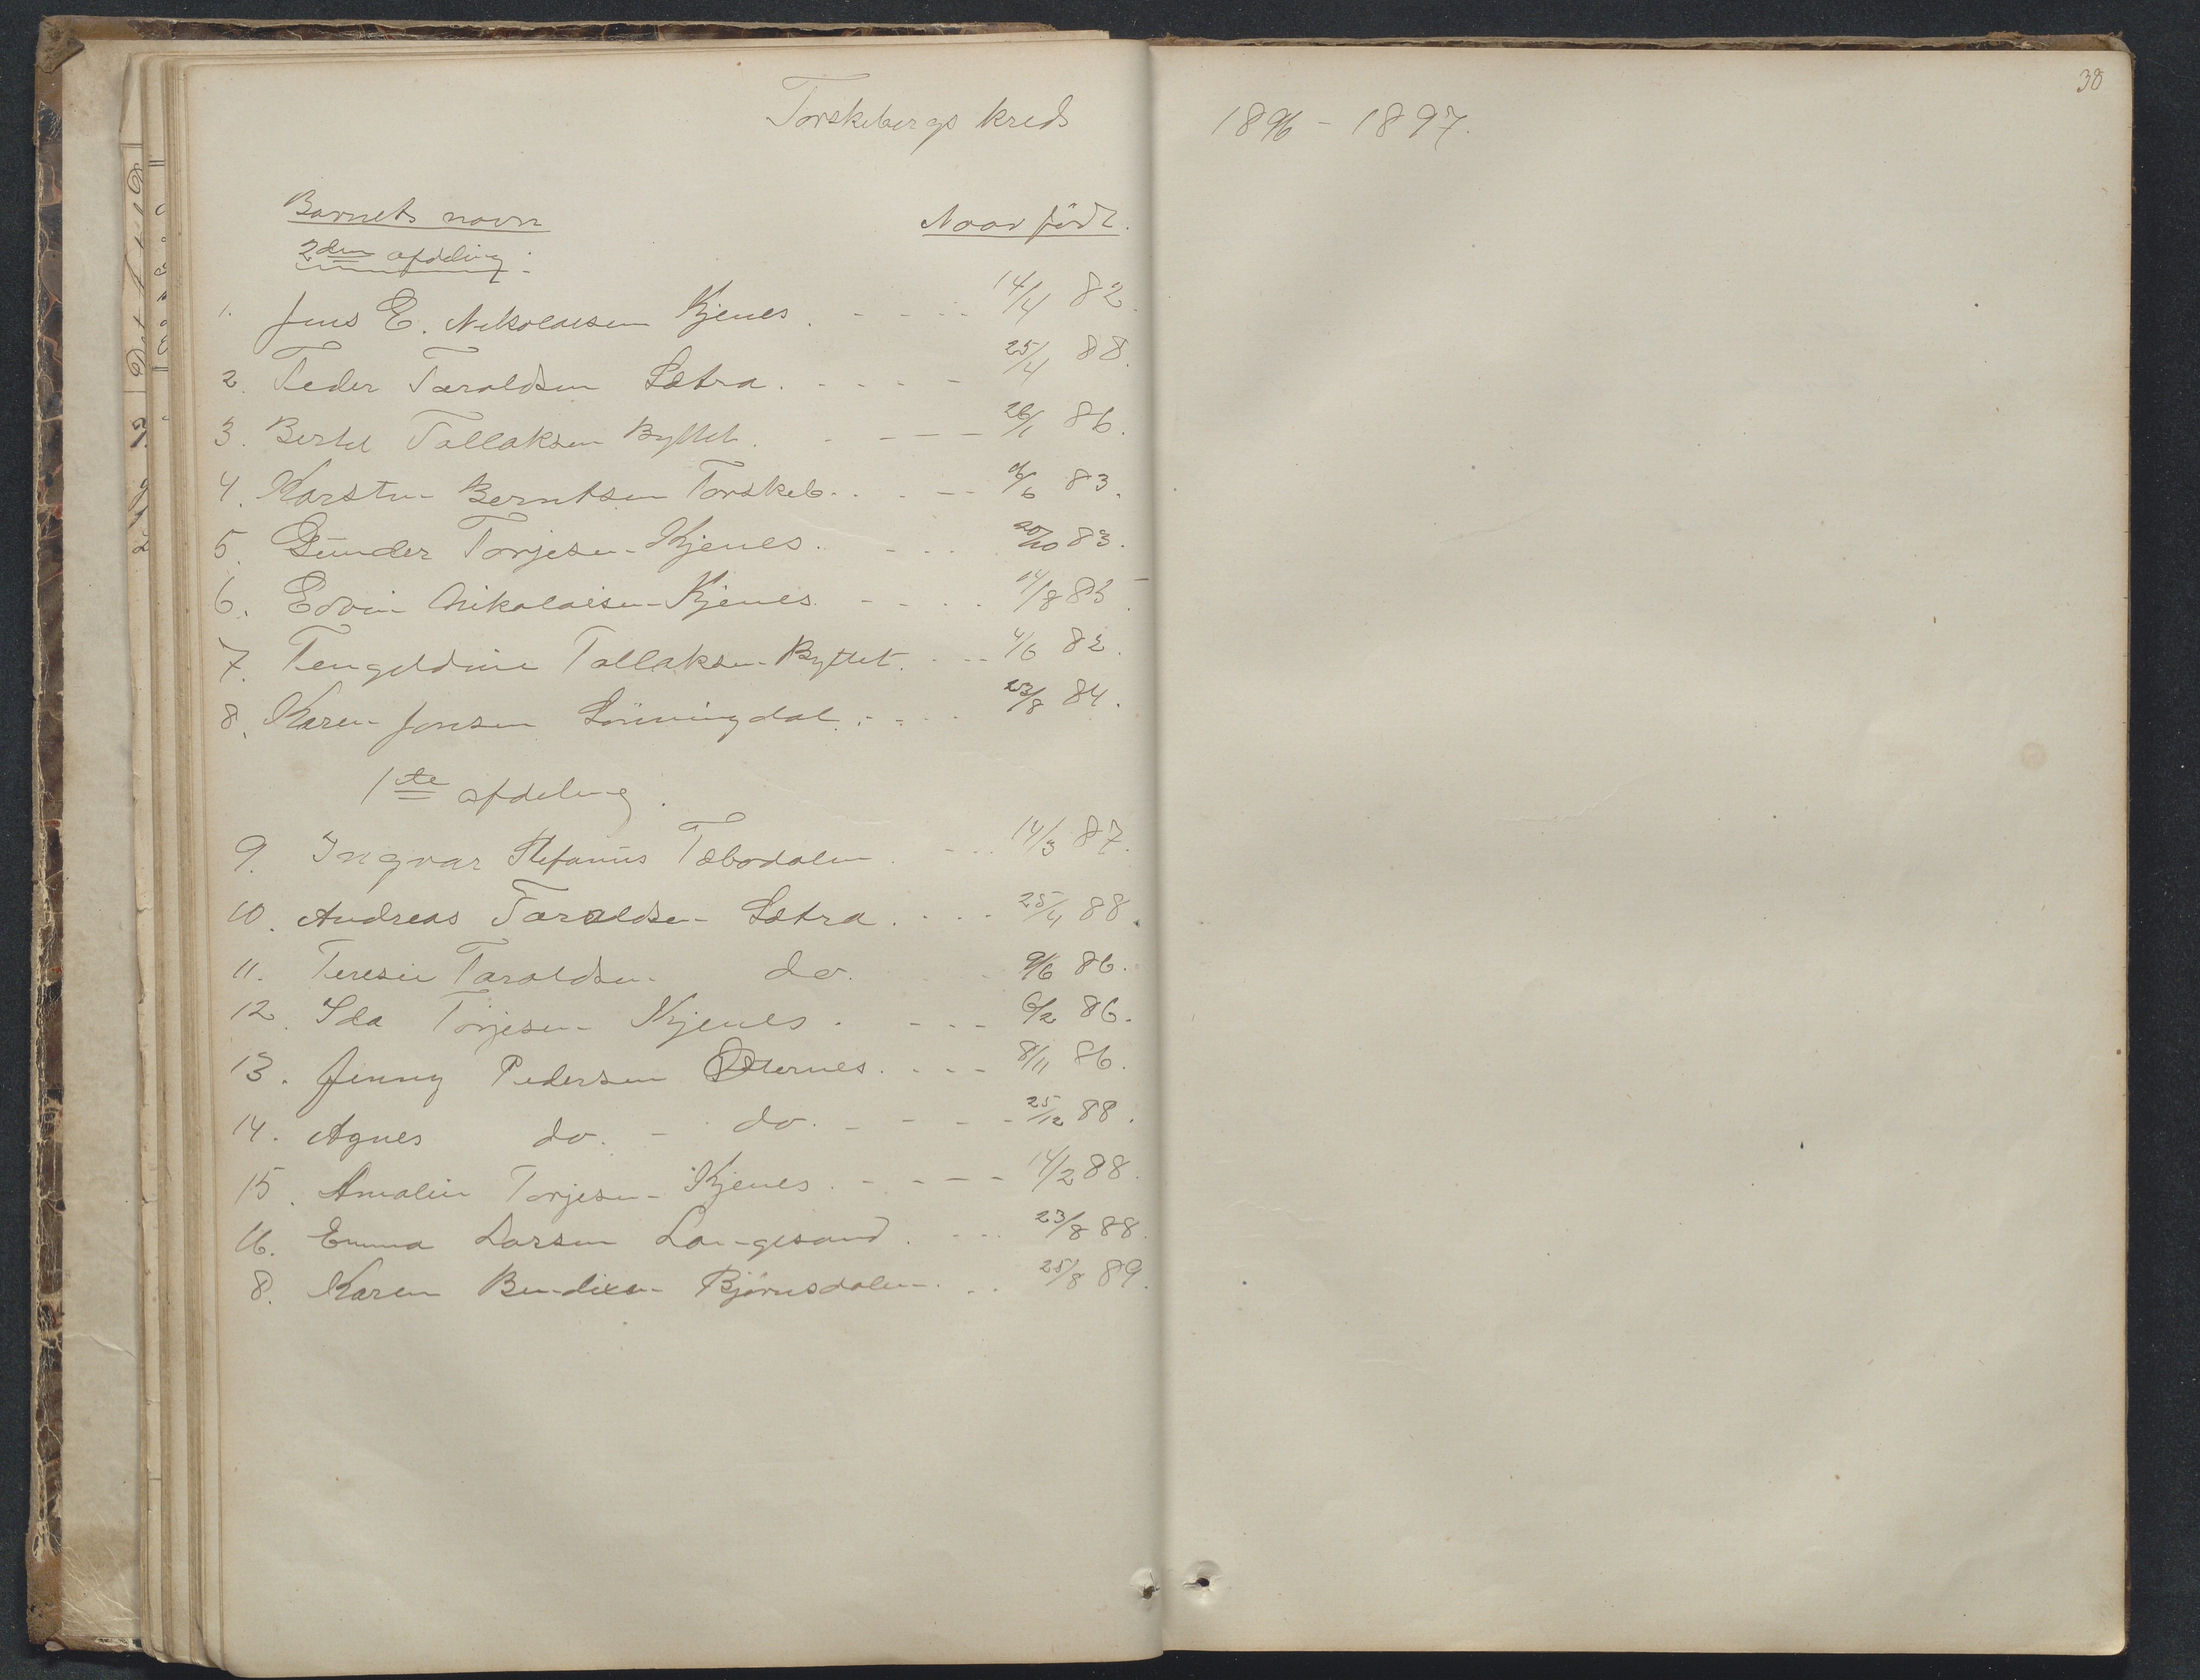 Torskebergs kreds 1896 - 1897.
38
Barnets navn Naar født.
2den afdeling.
1. Jens E. Nikolaisen Kjenes. 14/4 82.
2. Peder Taraldsen Sætra. 25/4 88.
3. Bertel Tallaksen Byttet. 26/1 86.
4. Karsten Berntsen Torskeb. 83.
5. Gunder Torjesen Kjenes. 20/10 83.
6. Edvin Nikolaisen Kjenes. 14/8 85.
7. Tengeldine Tallaksen Byttet. 4/6 82.
8. Karen Jonsen Lönningdal. 23/8 84.
1te afdeling.
9. Ingvar Stefanus Tæbodalen. 14/3 87.
10. Andreas Taraldsen Sætra. 25/4 88.
11. Teresie Taraldsen do. 9/6 86.
12. Ida Torjesen Kjenes. 6/2 86.
13. Jenny Pedersen Østernes. 8/11 86.
14. Agnes do. do. 25/12 88.
15. Amalie Torjesen Kjenes. 14/2 88.
16. Emma Larsen Langesand. 23/8 88.
8. Karen Bendixen Bjørnsdalen. 25/8 89.